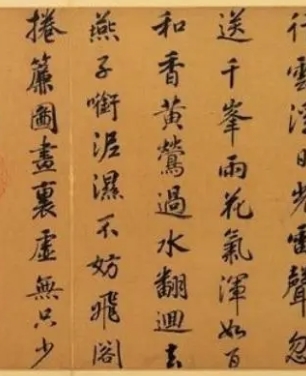 行雲浮日光雷聲忽
送千峯雨花氣渾如百
和香黃鶯過水翻迴去
燕子啣泥濕不妨飛閣
捲簾圖畫裏虛無只少